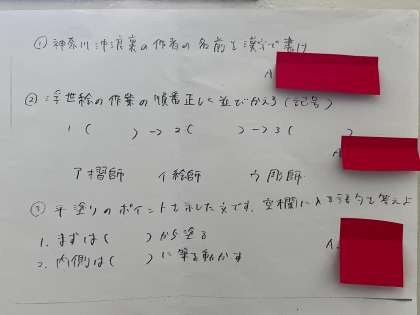 ① 神奈川沖浪裏の作者の名前を漢字で書け
A
② 浮世絵の作業の順番正しく並びかえろ(記号)
1 (     ) → 2 (     ) → 3 (     )
A
ア 摺師 イ 絵師 ウ 彫師
③ 平塗りのポイントを示した文です。空欄に入る語句を答えよ
1. まずは (     ) から塗る
A
2. 内側は (     ) に筆を動かす